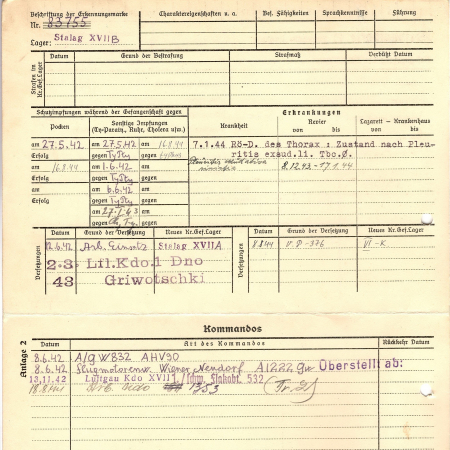 Beschriftung der Erkennungsmarke
Nr. 83755
Lager: Stalag XVIIB
Charaktereigenschaften u. a.
Bes. Fähigkeiten
Sprachkenntnisse
Führung
Strafen im Kr.Gef.Lager
Datum
Grund der Bestrafung
Strafmaß
Verbüßt Datum
Schutzimpfungen während der Gefangenschaft gegen
Erkrankungen
Pocken
Sonstige Impfungen
(Ty-Paraty., Ruhr, Cholera usw.)
Krankheit
Revier
von bis
Lazarett - Krankenhaus
von bis
am 27.5.42 am 27.5.42 am 16.8.44
7.1.44 Rö-D. des Thorax : Zustand nach Pleu-
Erfolg gegen TyPty gegen
ritis exsud.li. Tbc.Ø.
am 16.8.44 am 1.6.42 am
8.12.43 - 17.1.44
Erfolg gegen TyPty gegen
am am 6.6.42 am
Erfolg gegen TyPty gegen
am 27.1.43 am
gegen gegen
Versetzungen
Datum
Grund der Versetzung
Neues Kr.Gef.Lager
Datum
Grund der Versetzung
Neues Kr.Gef.Lager
12.6.42 Arb. Einsatz Stalag XVIIA
8.8.44 VI - K
2.3. Lfl.Kdo.1 Dno
43 Griwotschki
Anlage 2
Kommandos
Datum
Art des Kommandos
Rückkehr Datum
8.6.42 A/g W832 AHV90
8.6.42 Flugmotorenw. Wiener Neudorf A1222 Gw Überstellt ab:
13.11.42 Luftgau Kdo XVII 1./schw. Flakabt. 532
18.8.44 Arb. Kdo 1353